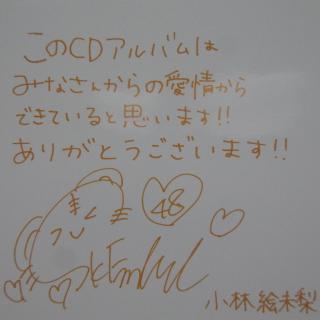 このCDアルバムは
みなさんからの愛情から
できていると思います!!
ありがとうございます!!
48
小林絵未梨